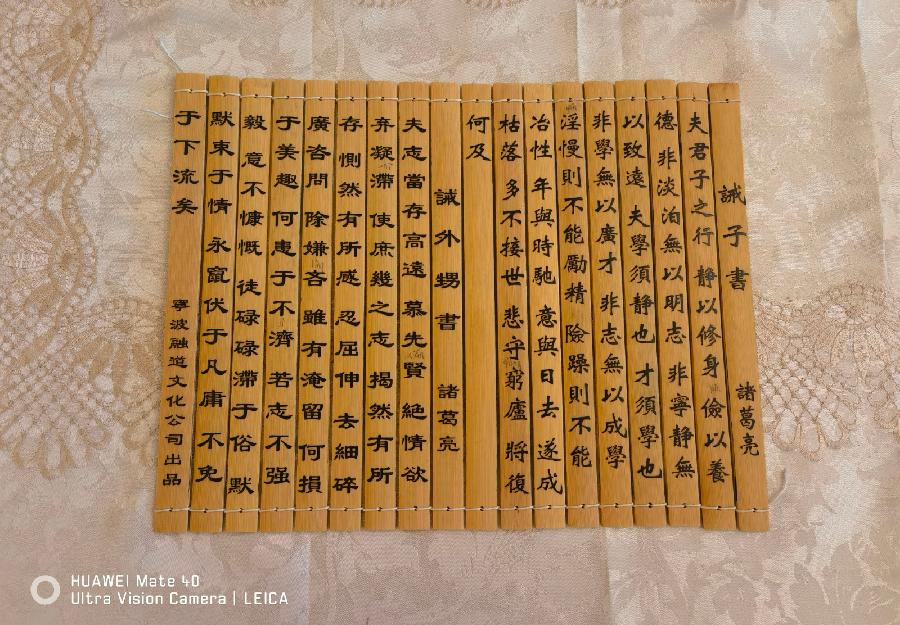 誡子書 諸葛亮
夫君子之行 静以修身 儉以養
德 非淡泊無以明志 非寧静無
以致遠 夫學須静也 才須學也
非學無以廣才 非志無以成學
淫慢則不能勵精 險躁則不能
冶性 年與時馳 意與日去 遂成
枯落 多不接世 悲守窮廬 將復
何及
誡外甥書 諸葛亮
夫志當存高遠 慕先賢 絶情欲
弃凝滯 使庶幾之志 揭然有所
存 惻然有所感 忍屈伸 去細碎
廣咨問 除嫌吝 雖有淹留 何損
于美趣 何患于不濟 若志不强
毅 意不慷慨 徒碌碌滯于俗 默
默束于情 永竄伏于凡庸 不免
于下流矣 寧波融道文化公司出品
HUAWEI Mate 40
Ultra Vision Camera | LEICA